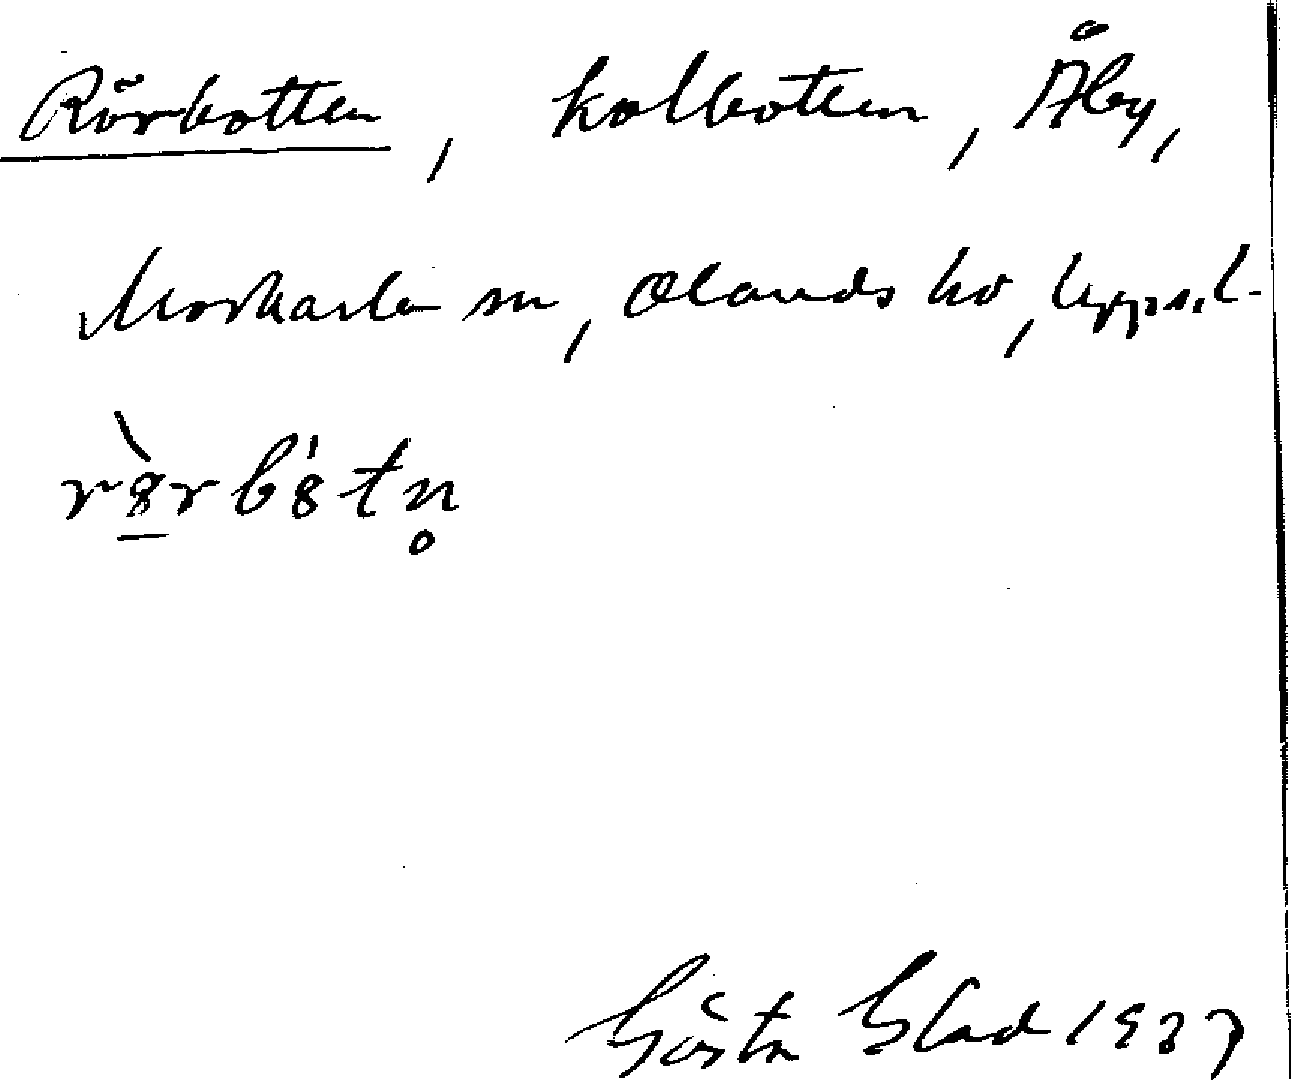 Rörbotten, kolbotten, Åby,
Morkarla sn, Olands hd, Uppsal
Gösta Blad 1937